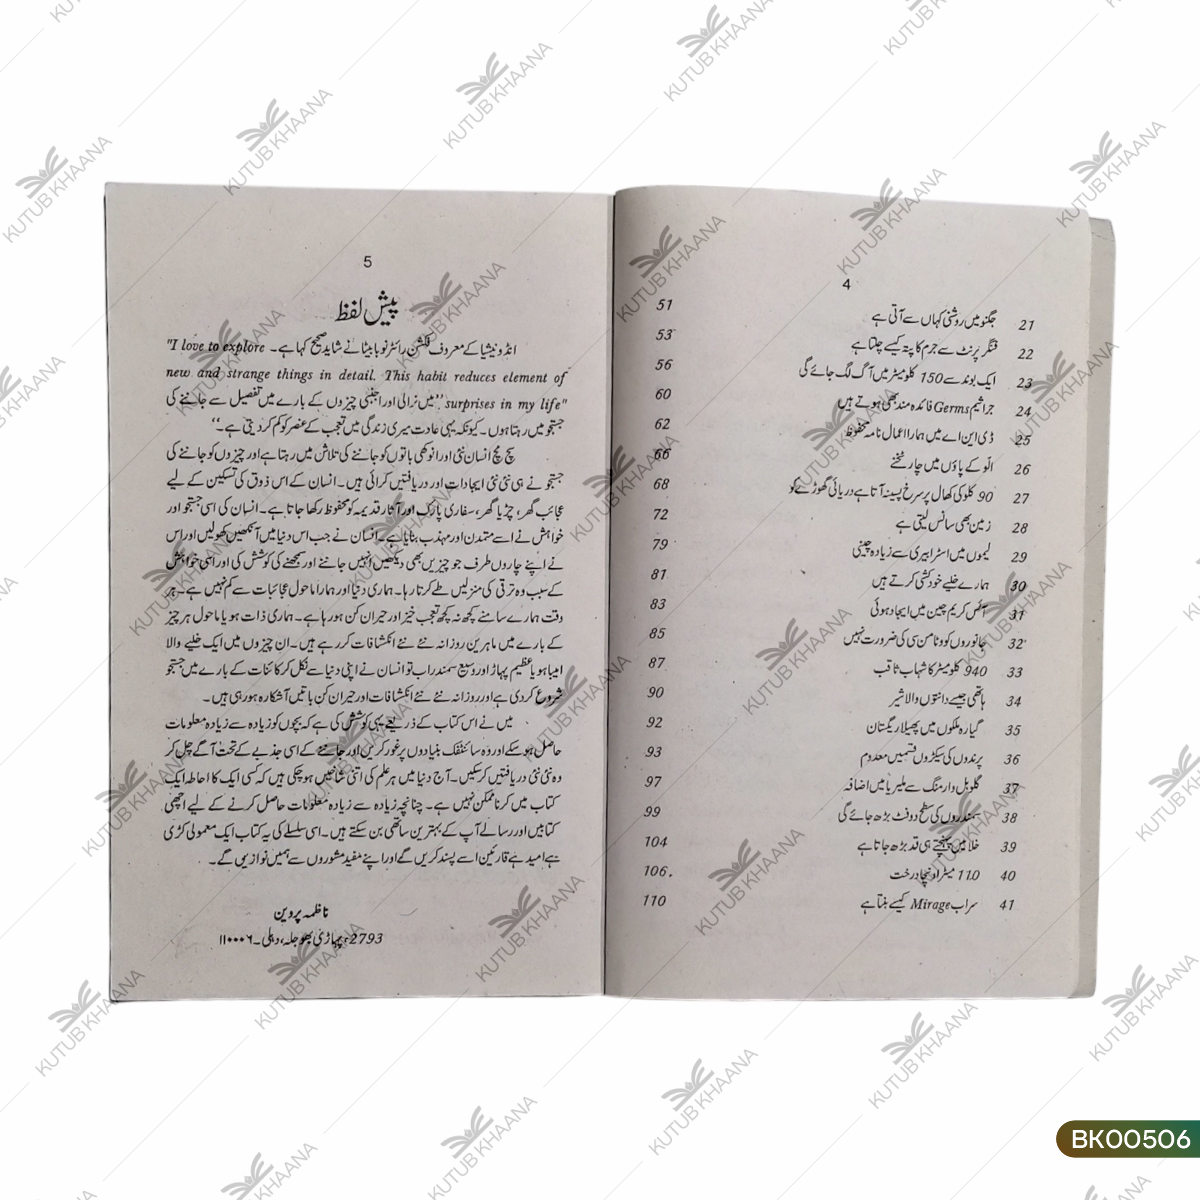 4
21 جگنو میں روشنی کہاں سے آتی ہے 51
22 فنگر پرنٹ سے جرم کا پتہ کیسے چلتا ہے 53
23 ایک بوند سے 150 کلومیٹر میں آگ لگ جائے گی 56
24 جراثیم Germs فائدہ مند بھی ہوتے ہیں 60
25 ڈی این اے میں ہمارا اعمال نامہ محفوظ 62
26 الّو کے پاؤں میں چار ٹخنے 66
27 90 کلو کی کھال پر سرخ پسینہ آتا ہے دریائی گھوڑے کو 68
28 زمین بھی سانس لیتی ہے 72
29 لیموں میں اسٹرابیری سے زیادہ چینی 79
30 ہمارے خلیے خودکشی کرتے ہیں 81
31 آئس کریم چین میں ایجاد ہوئی 83
32 جانوروں کو وٹامن سی کی ضرورت نہیں 85
33 940 کلومیٹر کا شہاب ثاقب 87
34 ہاتھی جیسے دانتوں والا شیر 90
35 گیارہ ملکوں میں پھیلا ریگستان 92
36 پرندوں کی سیکڑوں قسمیں معدوم 93
37 گلوبل وارمنگ سے ملیریا میں اضافہ 97
38 سمندروں کی سطح دو فٹ بڑھ جائے گی 99
39 خلا میں پہنچتے ہی قد بڑھ جاتا ہے 104
40 110 میٹر اونچا درخت 106.
41 سراب Mirage کیسے بنتا ہے 110
5
پیش لفظ
انڈونیشیا کے معروف فکشن رائٹر نوبا بیٹا نے شاید صحیح کہا ہے۔ "I love to explore
new and strange things in detail. This habit reduces element of
surprises in my life" ''میں نرالی اور اجنبی چیزوں کے بارے میں تفصیل سے جاننے کی
جستجو میں رہتا ہوں۔ کیونکہ یہی عادت میری زندگی میں تعجب کے عنصر کو کم کر دیتی ہے۔''
سچ مچ انسان نئی اور انوکھی باتوں کو جاننے کی تلاش میں رہتا ہے اور چیزوں کو جاننے کی
جستجو نے ہی نئی نئی ایجادات اور دریافتیں کرائی ہیں۔ انسان کے اس ذوق کی تسکین کے لیے
عجائب گھر، چڑیا گھر، سفاری پارک اور آثار قدیمہ کو محفوظ رکھا جاتا ہے۔ انسان کی اسی جستجو اور
خواہش نے اسے متمدن اور مہذب بنایا ہے۔ انسان نے جب اس دنیا میں آنکھیں کھولیں اور اس
نے اپنے چاروں طرف جو چیزیں بھی دیکھیں انہیں جاننے اور سمجھنے کی کوشش کی اور اسی خواہش
کے سبب وہ ترقی کی منزلیں طے کرتا رہا۔ ہماری دنیا اور ہمارا ماحول عجائبات سے کم نہیں ہے۔ ہر
وقت ہمارے سامنے کچھ نہ کچھ تعجب خیز اور حیران کن ہو رہا ہے۔ ہماری ذات ہو یا ماحول ہر چیز
کے بارے میں ماہرین روزانہ نئے نئے انکشافات کر رہے ہیں۔ ان چیزوں میں ایک خلیے والا
امیبا ہو یا عظیم پہاڑ اور وسیع سمندر اب تو انسان نے اپنی دنیا سے نکل کر کائنات کے بارے میں جستجو
شروع کر دی ہے اور روزانہ نئے نئے انکشافات اور حیران کن باتیں آشکارہ ہو رہی ہیں۔
میں نے اس کتاب کے ذریعے یہی کوشش کی ہے کہ بچوں کو زیادہ سے زیادہ معلومات
حاصل ہو سکے اور وہ سائنٹفک بنیادوں پر غور کریں اور جاننے کے اسی جذبے کے تحت آگے چل کر
وہ نئی نئی دریافتیں کر سکیں۔ آج دنیا میں ہر علم کی اتنی شاخیں ہو چکی ہیں کہ کسی ایک کا احاطہ ایک
کتاب میں کرنا ممکن نہیں ہے۔ چنانچہ زیادہ سے زیادہ معلومات حاصل کرنے کے لیے اچھی
کتابیں اور رسالے آپ کے بہترین ساتھی بن سکتے ہیں۔ اسی سلسلے کی یہ کتاب ایک معمولی کڑی
ہے امید ہے قارئین اسے پسند کریں گے اور اپنے مفید مشوروں سے ہمیں نوازیں گے۔
ناظمہ پروین
2793، پہاڑی بھوجلہ، دہلی۔ ۱۱۰۰۰۶
KUTUB KHAANA
BK00506